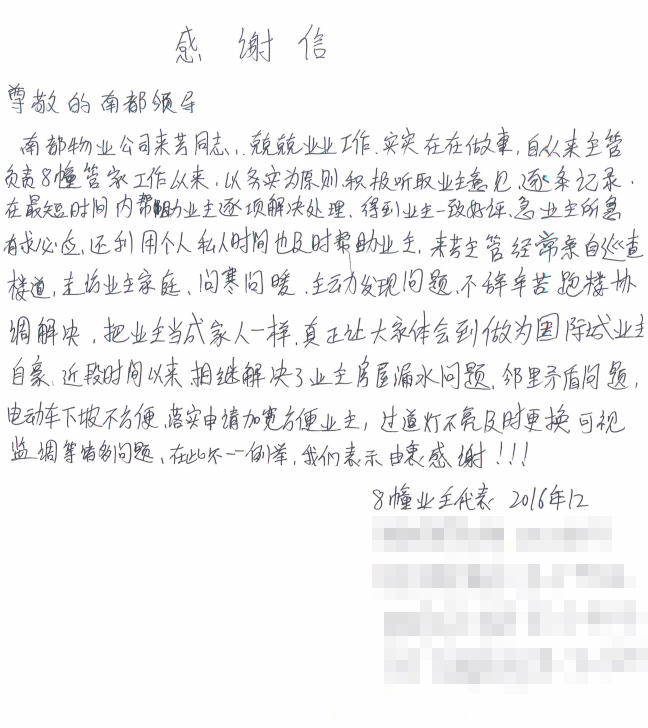 感谢信
尊敬的南都领导
南都物业公司来芳同志,兢兢业业工作.实实在在做事,自从来主管
负责8幢管家工作以来,以务实为原则,积极听取业主意见,逐条记录.
在最短时间内帮助业主逐项解决处理,得到业主一致好评,急业主所急
有求必应,还利用个人私人时间也及时帮助业主,来芳主管经常亲自巡查
楼道,走访业主家庭、问寒问暖、主动发现问题,不辞辛苦跑楼协
调解决,把业主当成家人一样,真正让大家体会到做为国际城业主
自豪、近段时间以来相继解决了业主房屋漏水问题,邻里矛盾问题,
电动车下坡不方便,落实申请加宽方便业主,过道灯不亮及时更换可视
监调等诸多问题、在此不一一例举,我们表示由衷感谢!!!
8幢业主代表 2016年12